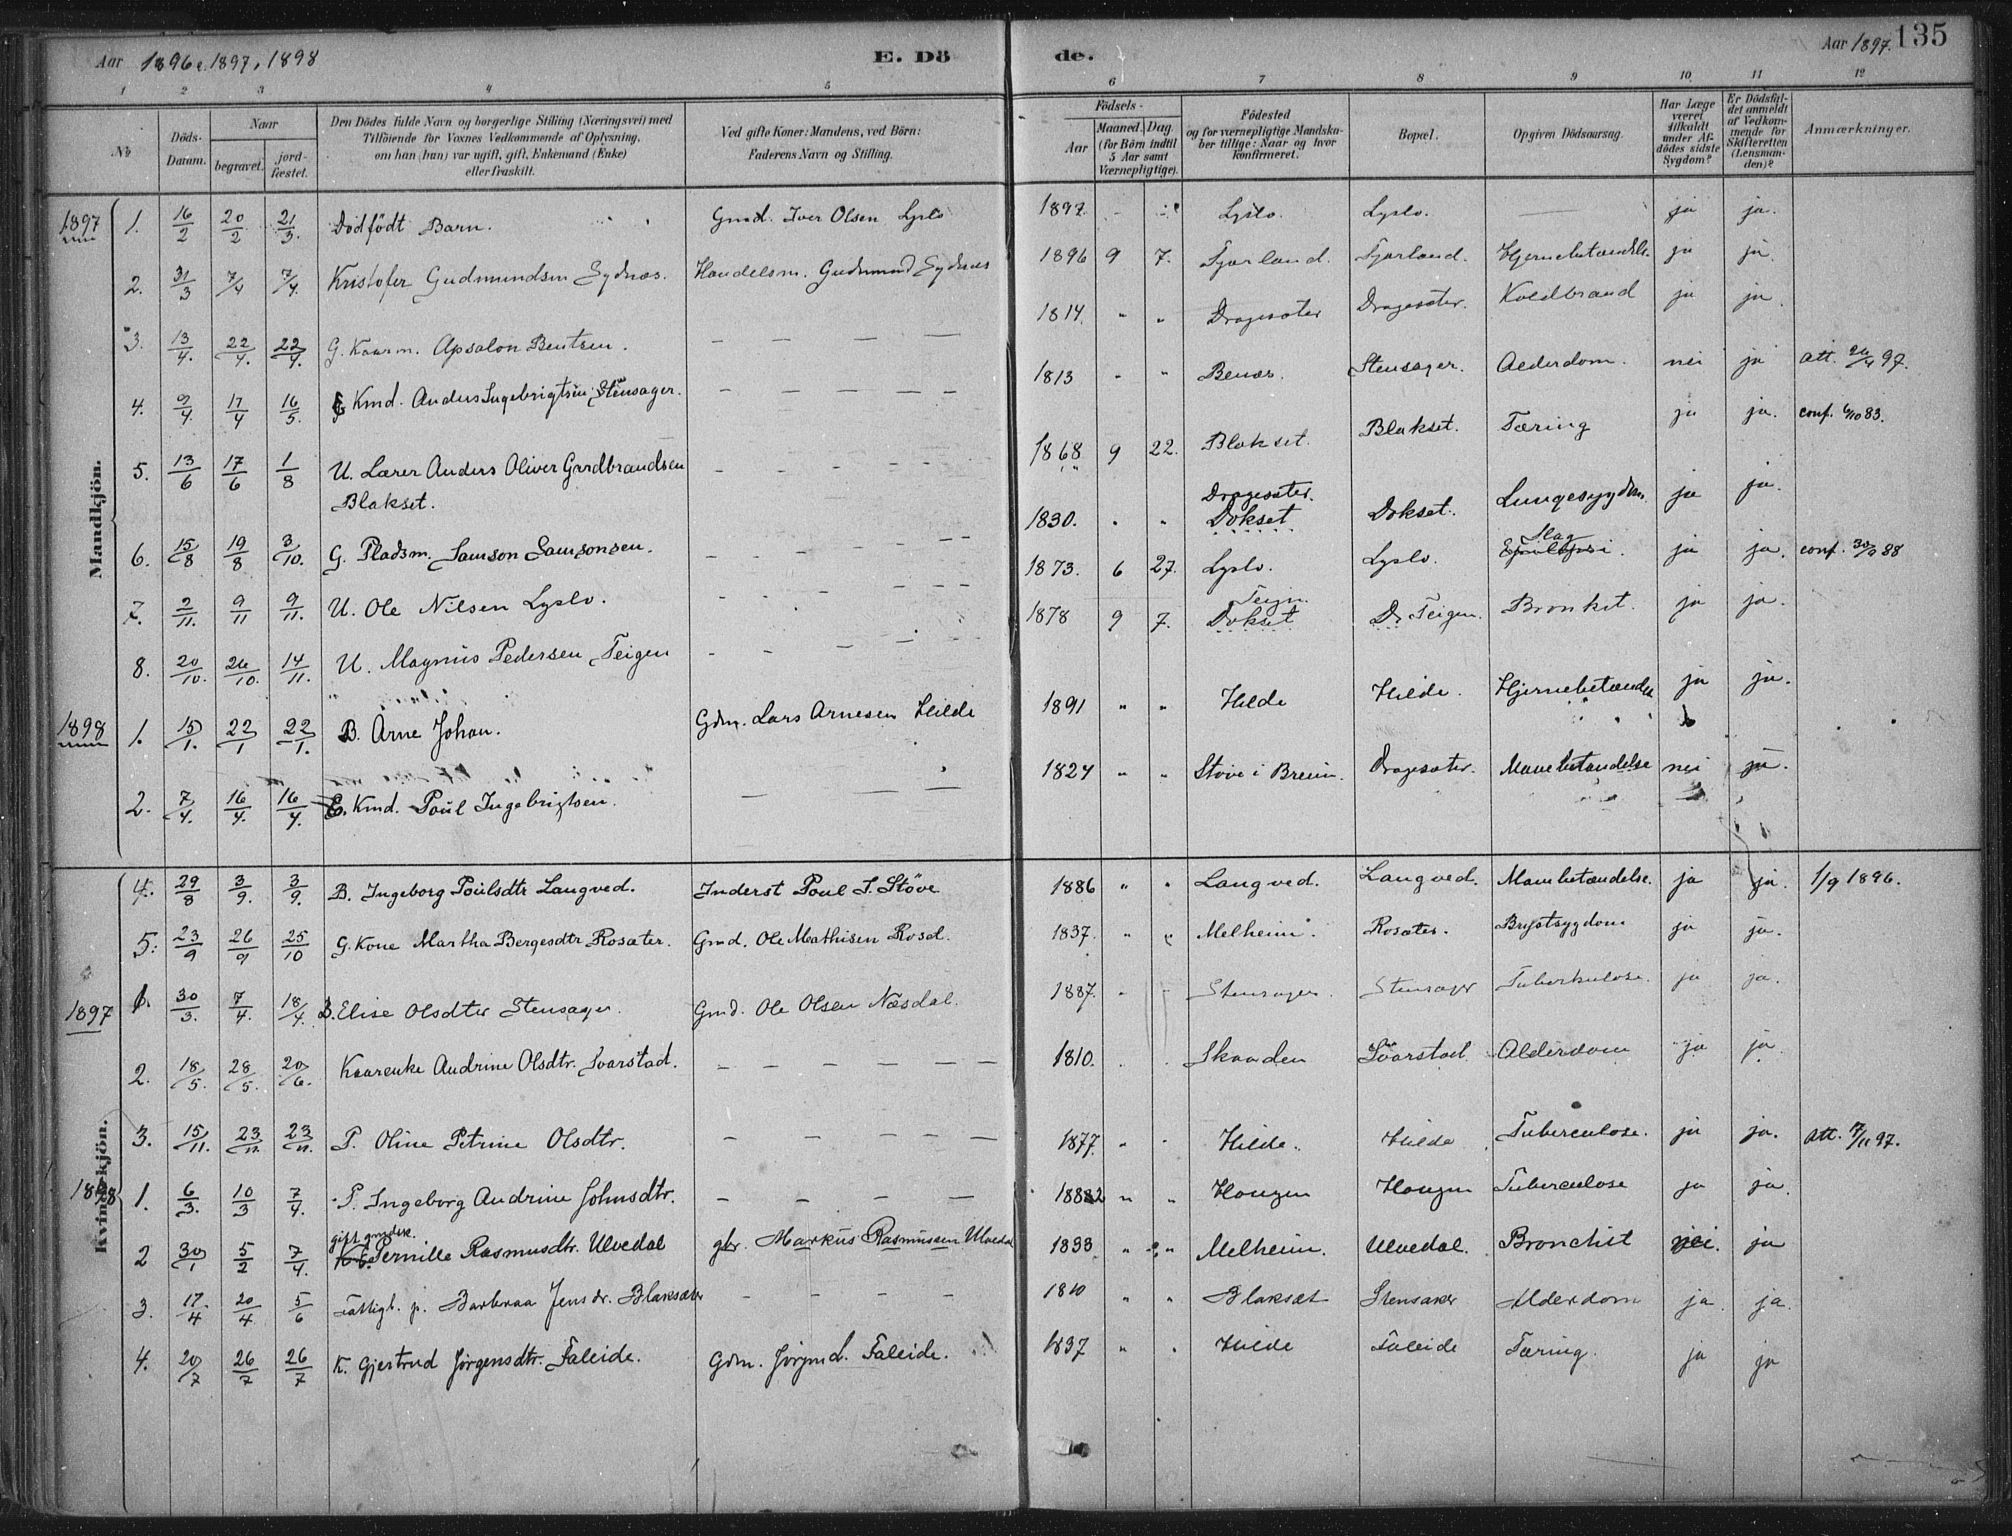 Aar 1896 1897, 1898
E. Dö
de.
Aar 1897. 135
1 2 3 4 5 6 7 8 9 10 11 12
No
Döds-Datum.
Naar
begravet.
jord-fæstet.
Den Dödes fulde Navn og borgerlige Stilling (Næringsvei) med
Tilföiende for Voxnes Vedkommende af Oplysning,
om han (hun) var ugift, gift, Enkemand (Enke)
eller fraskilt.
Ved gifte Koner: Mandens, ved Börn:
Faderens Navn og Stilling.
Födsels-
Aar
Maaned. Dag.
(for Börn indtil
5 Aar samt
Værnepligtige).
Födested
og for værnepligtige Mandska-
ber tillige: Naar og hvor
konfirmeret.
Bopæl.
Opgiven Dödsaarsag.
Har Læge
været
tilkaldt
under Af-
dödes sidste
Sygdom?
Er Dödsfal-
det anmeldt
af Vedkom-
mende for
Skifteretten
(Lensman-
den)?
Anmærkninger.
Mandkjön.
1897 1. 16/2 20/2 21/3. Dödfödt Barn. Gmd. Iver Olsen Lyslo 1897 - - Lyslo. Lyslo. — ja ja.
2. 31/3 7/4 7/4. Kristofer Gudmundsen Sydnæs. Handelsm. Gudmund Sydnæs 1896 9 7. Fjærland. Fjærland. Hjernebetændelse ja ja.
3. 13/4. 22/4. 22/4. G. Kaarm. Apsalon Bentsen. — — — — 1814 " " Dragesæter Dragesæter. Koldbrand ja ja.
4. 9/4. 17/4 16/5. Kmd. Anders Ingebrigtsen Stensager. — — — — 1813 " " Benæs. Stensager. Alderdom. nei ja att. 97.
5. 13/6 17/6 1/8 U. Lærer Anders Oliver Gudbrandsen
Blakset. - - - - - 1868 9 22. Blakset. Blakset. Tæring ja ja. conf. 6/10 83.
6. 15/8 19/8 3/10. G. Pladsm. Samson Samsonsen. - - - - - 1830. " " Dragesæter. Dokset Dokset. Lungesygdom ja ja.
7. 2/11. 9/11 9/11. U. Ole Nilsen Lyslo. - - - - - 1873. 6 27. Lyslo. Lyslo. Slag ja ja. conf. 30/9 88
8. 20/10. 26/10. 14/11. U. Magnus Pedersen Teigen - - - - 1878 9 7. Teigen Dokset Teigen. Bronkit. ja ja.
1898 1. 15/1. 22/1 22/1. B. Arne Johan. Gdm. Lars Arnesen Hilde 1891 " " Hilde Hilde. Hjernebetændelse ja ja.
2. 7/4. 16/4. 16/4 E. Kmd. Poul Ingebrigtsen. — — — 1824 " " Støve i Breim. Dragesæter. Mavebetændelse nei ja.
Kvindekjön.
4. 29/8 3/9. 3/9. B. Ingeborg Poulsdtr Langved. Inderst Poul J. Støve 1886 " " Langved. Langved. Mavebetændelse. ja ja. 1/9 1896.
5. 23/9 26/9 25/10 G. Kone Martha Bergesdtr Rosæter. Gmd. Ole Mathisen Rosæt. 1837. " " Melheim. Rosæter. Brystsygdom ja ja.
1897 1. 30/3. 7/4. 18/4. B. Elise Olsdtr Stensager. Gmd. Ole Olsen Næsdal. 1887. - - Stensager. Stensager Tuberkulose. ja ja.
2. 18/5. 28/5. 20/6. Kaarenke Andrine Olsdtr. Svarstad. — — — — — 1810. . . Skaaden Svarstad Alderdom ja ja
3. 15/11. 23/11. 23/11. P. Oline Petrine Olsdtr. — — — — — 1877. " " Hilde. Hilde Tuberculose. ja ja. att. 7/11 97.
1898 1. 6/3. 10/3 7/4. P. Ingeborg Andrine Johnsdtr. — — — — 1882 " " Hougen Hougen Tuberculose ja ja.
2 30/1 5/2 7/4. gift gmdsk. Pernille Rasmusdtr. Ulvedal gbr. Markus Rasmussen Ulvedal 1833 " " Melheim. Ulvedal. Bronchit nei. ja
3. 17/4 20/4 5/6 Fattigl. p. Barbraa Jensdr. Blaksæter - - - - - 1810 " " Blaksæt Stensaker Alderdom ja. ja.
4. 20/7 26/7 26/7 K. Gjertrud Jørgensdtr. Faleide. Gdm. Jørgen L. Faleide. 1837 " " Hilde Faleide Tæring. ja ja